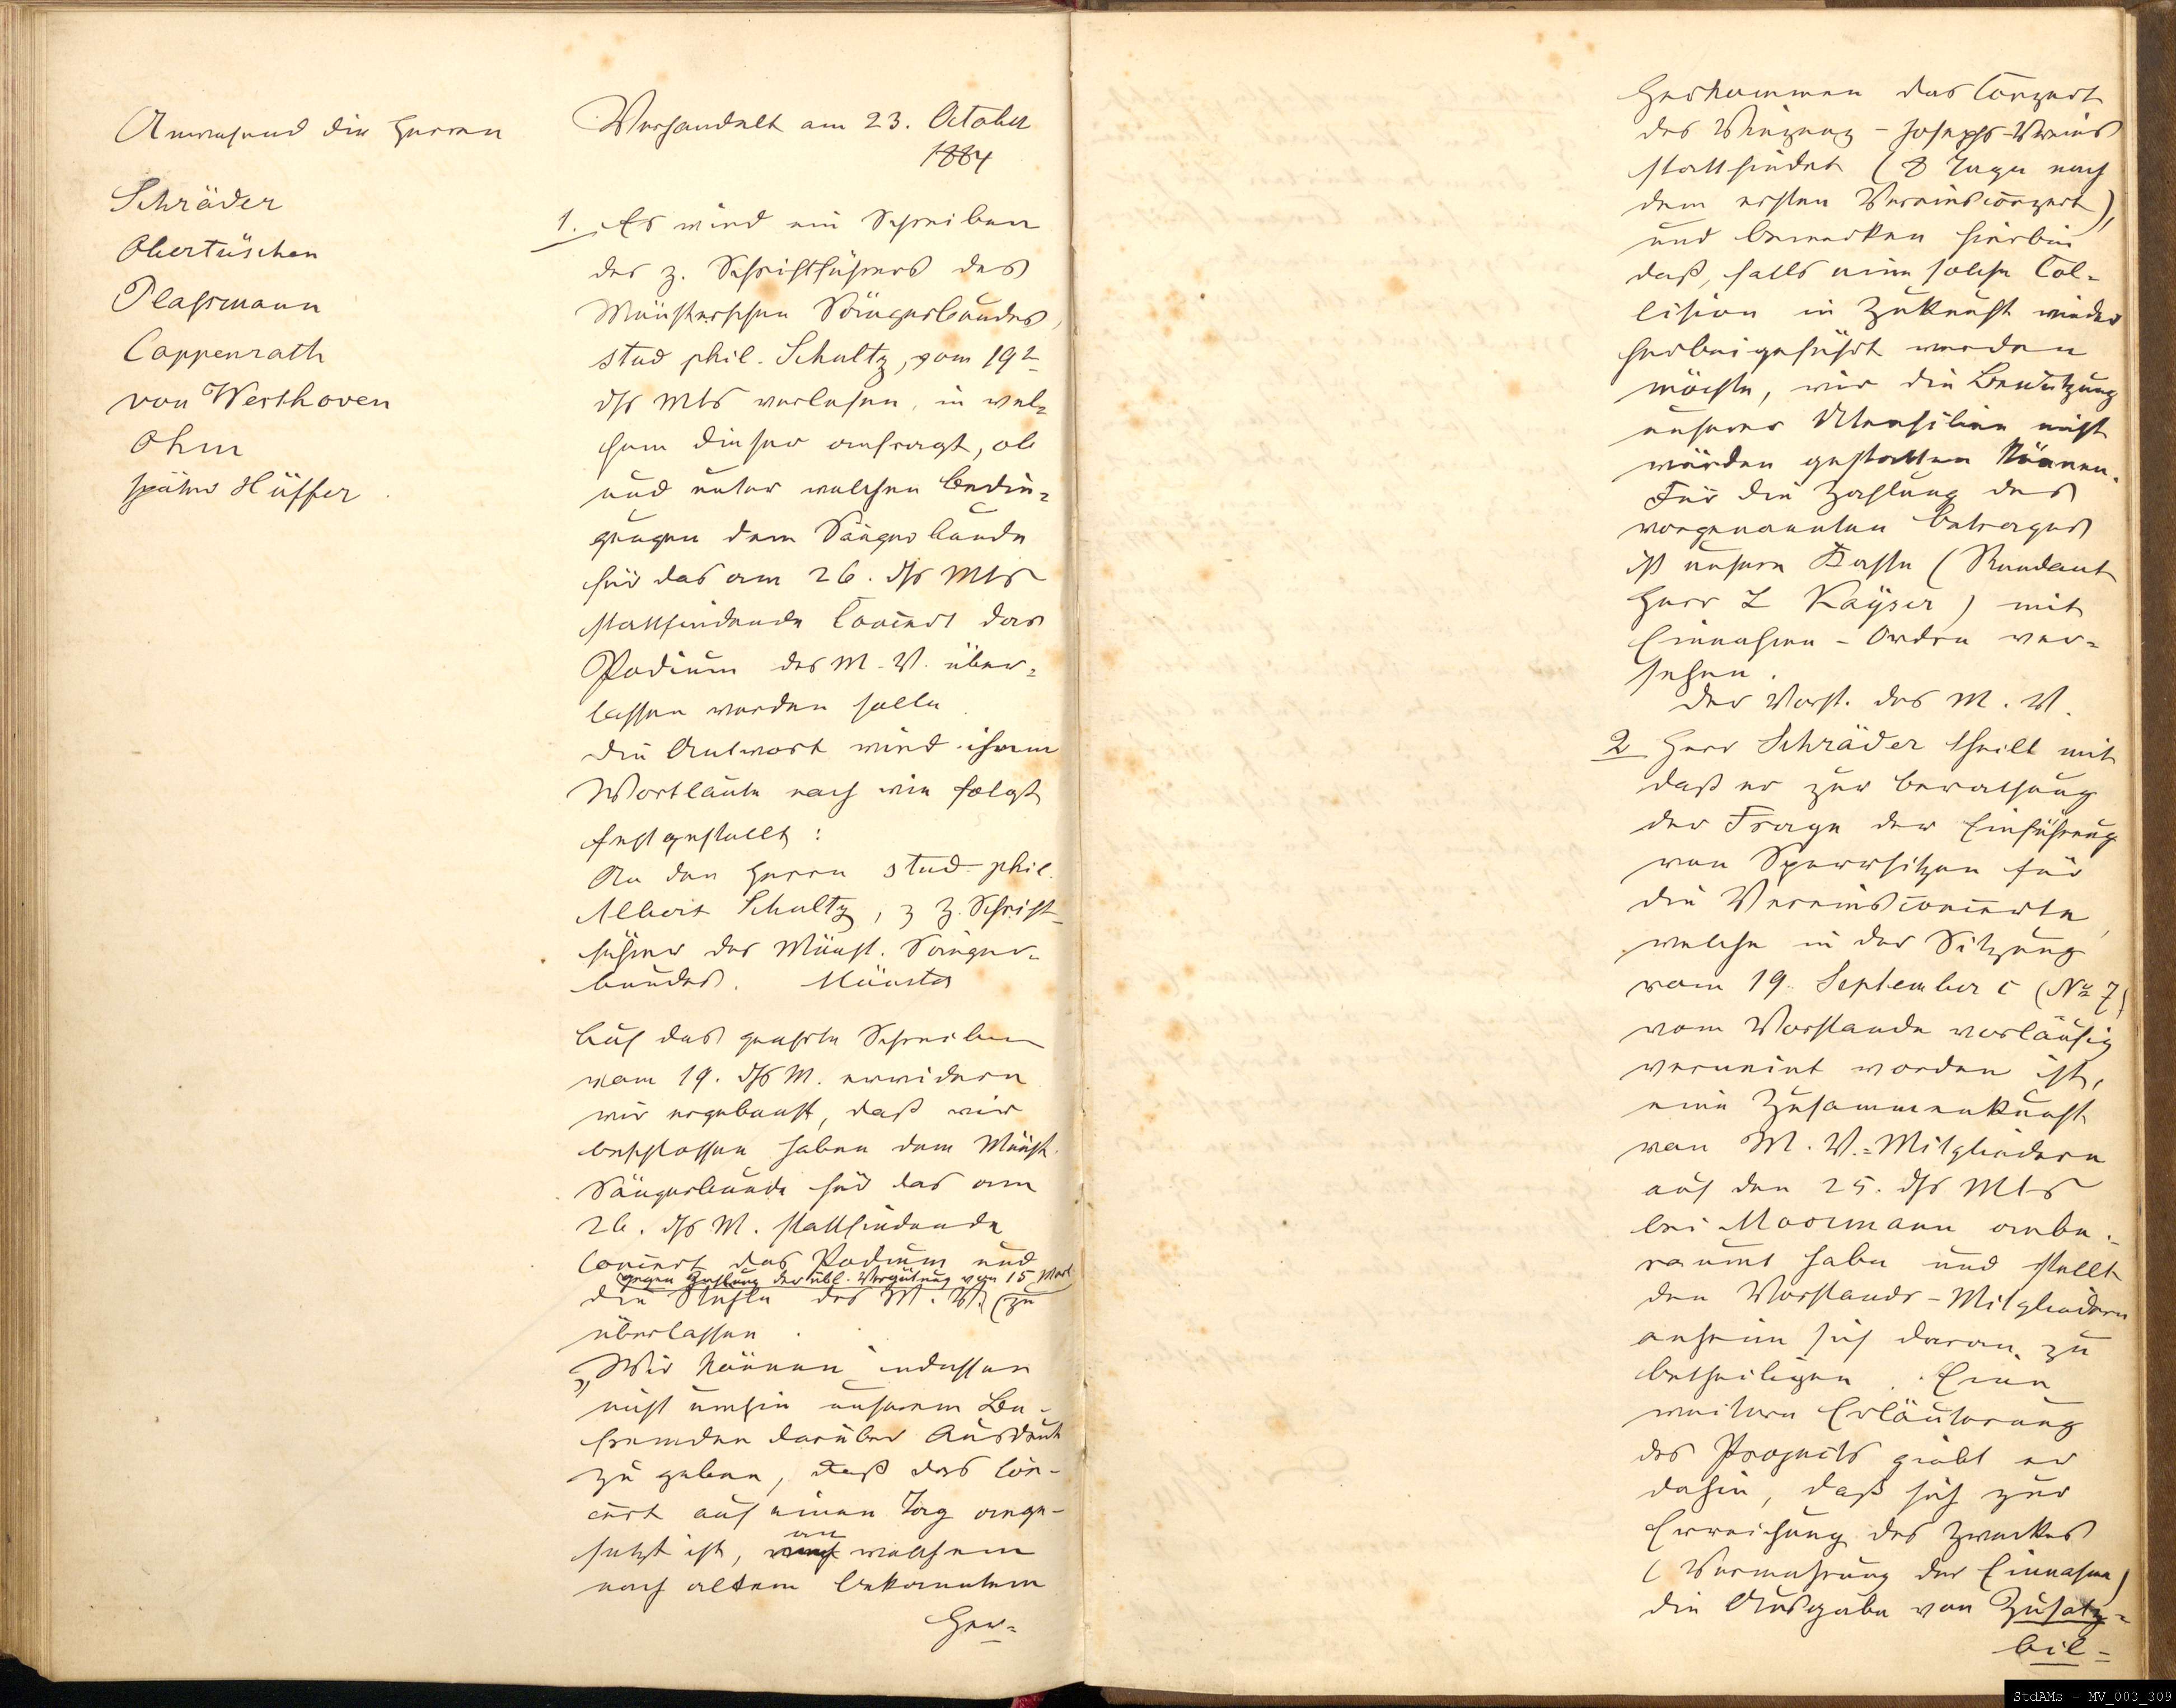 Anwesend die Herren
Schräder
Obertüschen
Plassmann
Coppenrath
von Westhoven
Ohm
später Hüffer.
Verhandelt am 23. October
1884
1. Es wird ein Schreiben
des z. Schriftführers des
Münsterschen Sängerbundes,
stud phil. Schultz, vom 19t
dss Mts verlesen, in wel-
chem dieser anfragt, ob
und unter welchen Bedin-
gungen dem Sängerbunde
für das am 26. dss Mts
stattfindende Concert das
Podium des M. V. über-
lassen werden solle.
Die Antwort wird ihrem
Wortlaute nach wie folgt
festgestellt:
An den Herrn stud. phil.
Albert Schultz, z Z. Schrift-
führer des Münst. Sänger-
bundes. Münster
Auf das geehrte Schreiben
vom 19. dss M. erwidern
wir ergebenst, daß wir
beschlossen haben dem Münst.
Sängerbunde für das am
26. dss M. stattfindende
Concert das Podium und
gegen Zahlung der übl. Vergütung von 15 Mark
die Stühle des M. V. (zu
überlassen.
„Wir können indessen
nicht umhin unserem Be-
fremden darüber Ausdruck
zu geben, daß das Con-
cert auf einen Tag ange-
setzt ist, an welchem
nach altem bekanntem
Her-
Herkommen das Conzert
des Vinzenz-Josephs-Vereins
stattfindet (8 Tage nach
dem ersten Vereinsconzert),
und bemerken hierbei
daß, falls eine solche Col-
lision in Zukunft wieder
herbeigeführt werden
möchte, wir die Benutzung
unserer Utensilien nicht
würden gestatten können.
Für die Zahlung des
vorgenannten Betrages
ist unsere Kasse (Rendant
Herr L Kayser) mit
Einnahme-Ordre ver-
sehen.
Der Vorst. des M. V.
2 Herr Schräder theilt mit
daß er zur Berathung
der Frage der Einführung
von Sperrsitzen für
die Vereinsconcerte,
welche in der Sitzung
vom 19. September c (No 7)
vom Vorstande vorläufig
verneint worden ist,
eine Zusammenkunft
von M. V.-Mitgliedern
auf den 25. dss Mts
bei Moormann anbe-
raumt habe und stellt
den Vorstands-Mitgliedern
anheim sich daran zu
betheiligen. Eine
weitere Erläuterung
des Projects giebt er
dahin, daß sich zur
Erreichung des Zweckes
(Vermehrung der Einnahme)
die Ausgabe von Zusatz-
bil-
StdAMs - MV_003_309